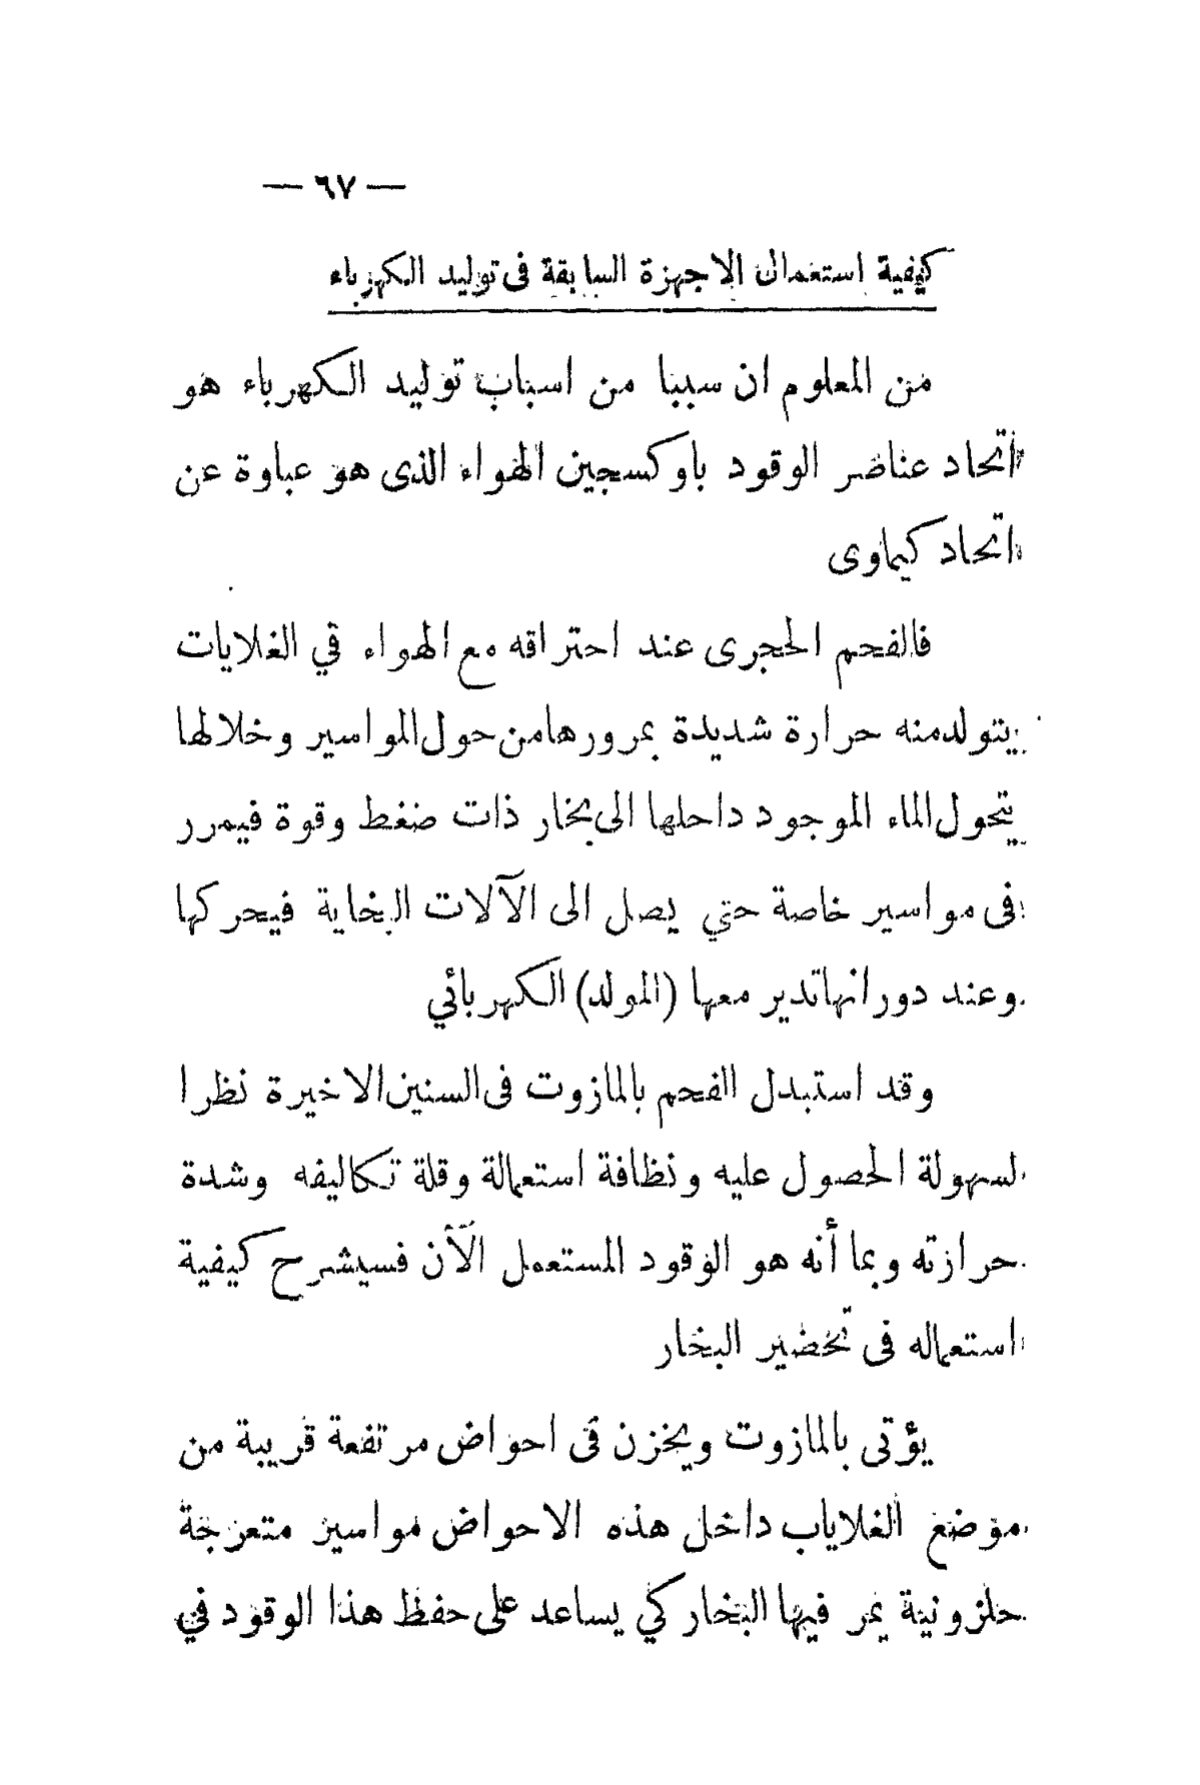 — ٦٧ —
كيفية استعمال الاجهزة السابقة فى توليد الكهرباء
من المعلوم ان سببا من اسباب توليد الكهرباء هو
اتحاد عناصر الوقود باوكسجين الهواء الذى هو عباوة عن
اتحاد كيماوى
فالفحم الحجرى عند احتراقه مع الهواء في الغلايات
يتولد منه حرارة شديدة بمرورها من حول المواسير وخلالها
يتحول الماء الموجود داحلها الى بخار ذات ضغط وقوة فيمرر
فى مواسير خاصة حتي يصل الى الآلات البخاية فيحركها
وعند دورانها تدير معها (المولد) الكهربائي
وقد استبدل الفحم بالمازوت فى السنين الاخيرة نظرا
لسهولة الحصول عليه ونظافة استعمالة وقلة تكاليفه وشدة
حرازته وبما أنه هو الوقود المستعمل الآن فسيشرح كيفية
استعماله فى تحضير البخار
يؤتى بالمازوت ويخزن فى احواض مرتفعة قريبة من
موضع الغلاياب داخل هذه الاحواض مواسير متعرجة
حلزونية يمر فيها البخار كي يساعد على حفظ هذا الوقود في